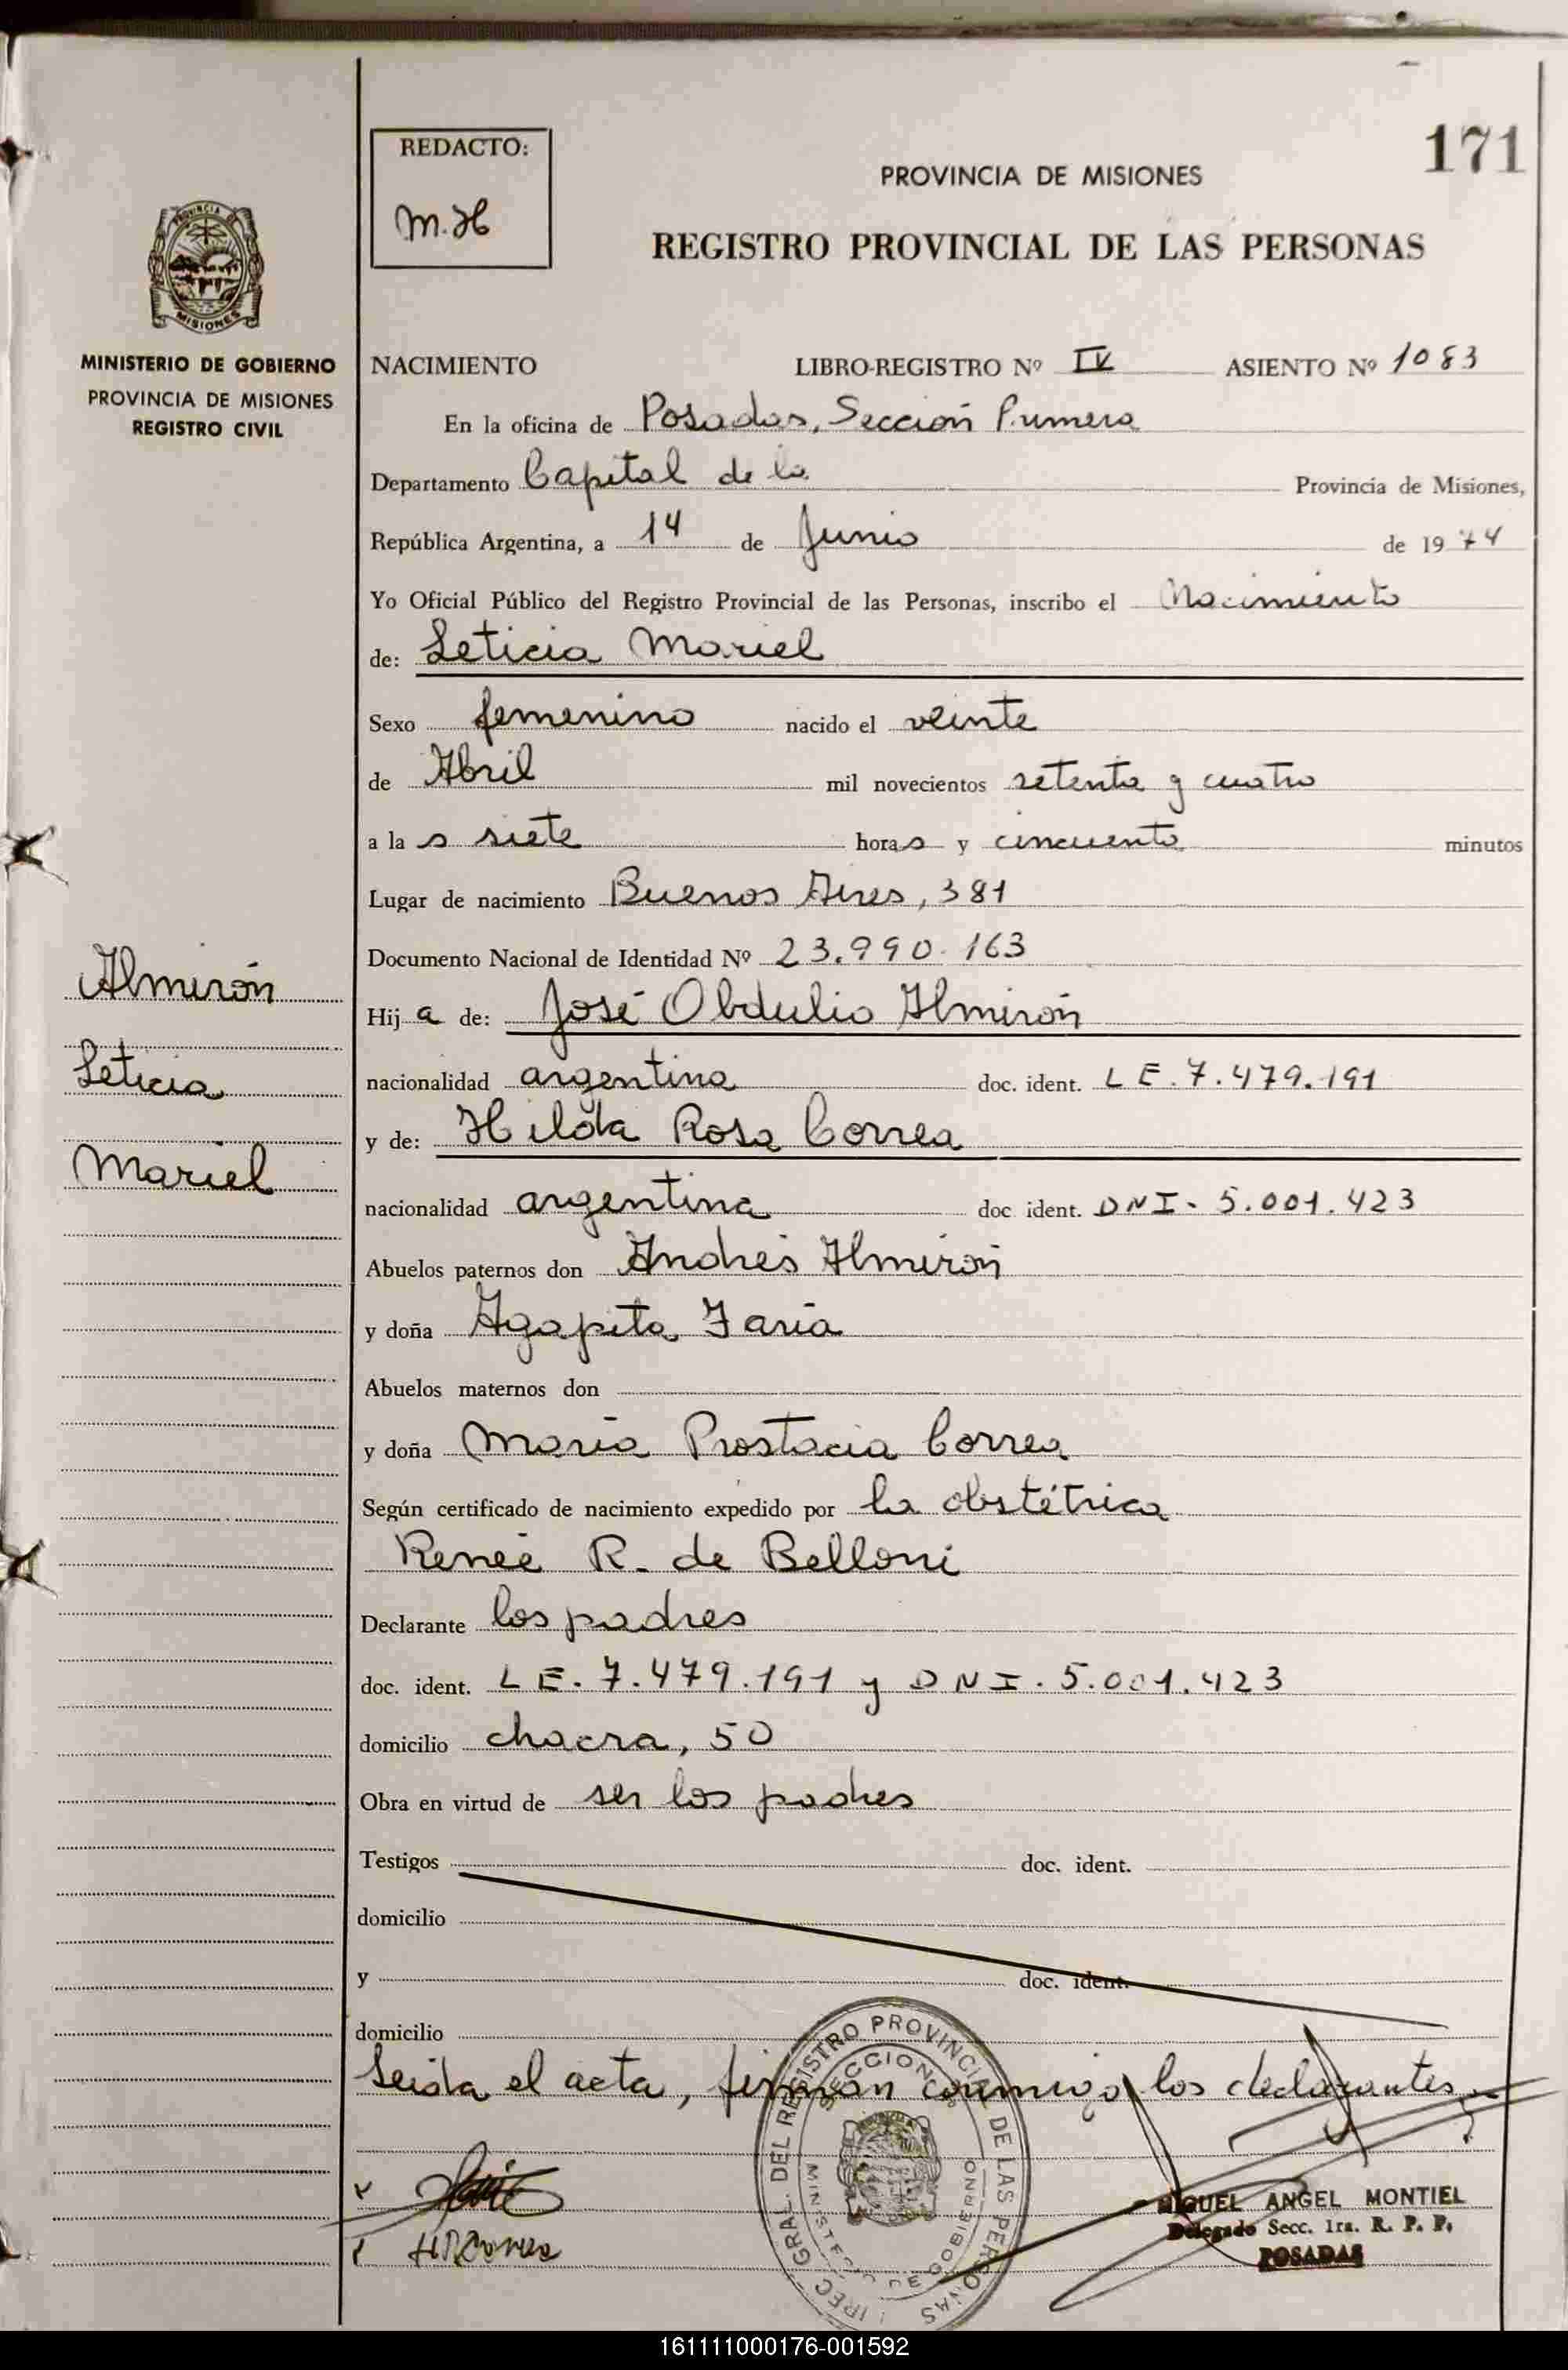 171
REDACTO:
M.H
PROVINCIA DE MISIONES
REGISTRO PROVINCIAL DE LAS PERSONAS
PROVINCIA DE
MISIONES
MINISTERIO DE GOBIERNO
PROVINCIA DE MISIONES
REGISTRO CIVIL
NACIMIENTO LIBRO-REGISTRO Nº IV ASIENTO Nº 1083
En la oficina de Posadas, Sección Primera
Departamento Capital de la Provincia de Misiones,
República Argentina, a 14 de Junio de 1974
Yo Oficial Público del Registro Provincial de las Personas, inscribo el Nacimiento
de: Leticia Mariel
Sexo femenino nacido el veinte
de Abril mil novecientos setenta y cuatro
a la s siete horas y cincuenta minutos
Lugar de nacimiento Buenos Aires, 381
Documento Nacional de Identidad Nº 23.990.163
Hij a de: José Obdulio Almirón
nacionalidad argentina doc. ident. LE. 7.479.191
y de: Hilda Rosa Correa
nacionalidad argentina doc ident. DNI- 5.001.423
Abuelos paternos don Andrés Almirón
y doña Agapita Faria
Abuelos maternos don
y doña María Prostacia Correa
Según certificado de nacimiento expedido por la obstétrica
Renée R. de Belloni
Declarante los padres
doc. ident. LE. 7.479.191 y DNI. 5.001.423
domicilio chacra, 50
Obra en virtud de ser los padres
Testigos doc. ident.
domicilio
y doc. ident.
domicilio
Leida el acta, firman conmigo los declarantes
Almirón
Leticia
Mariel
HRCorrea
GRAL. DEL REGISTRO PROVINCIAL DE LAS PERSONAS
SECCION
MINISTERIO DE GOBIERNO
MIGUEL ANGEL MONTIEL
Delegado Secc. 1ra. R. P. P.
POSADAS
161111000176-001592